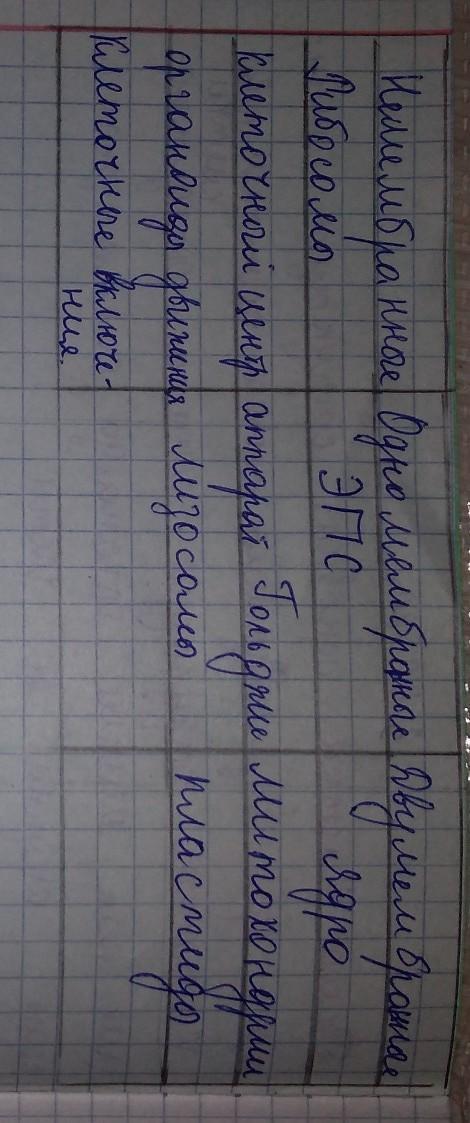 Немембранные Одномембраные Двумембраные
Рибосомы ЭПС Ядро
клеточный центр аппарат Гольджи митохондрии
органоиды движения лизосомы пластиды
Клеточные включе-
ния